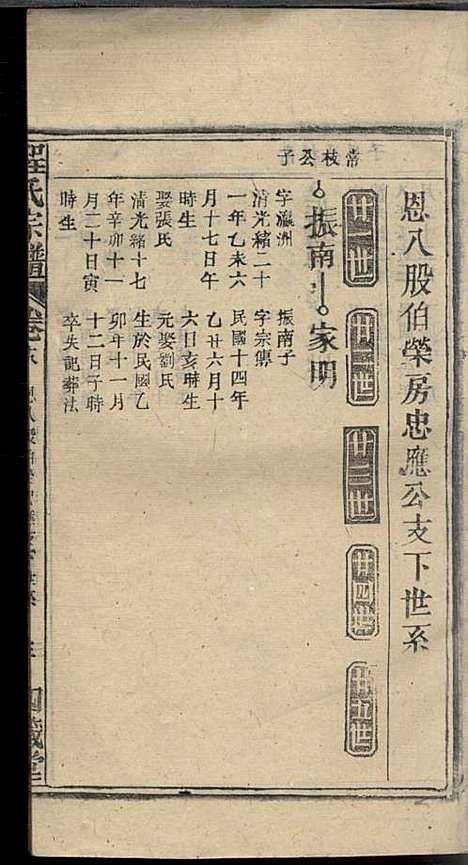 恩八股伯榮房忠應公支下世系
廿一世
廿二世
廿三世
廿四世
廿五世
常枝公子
振南
家明
字瀛洲
清光緒二十
一年乙未六
月十七日午
時生
娶張氏
清光緒十七
年辛卯十一
月二十日寅
時生
振南子
字宗傳
民國十四年
乙丑六月十
六日亥時生
元娶劉氏
生於民國乙
卯年十一月
十二日子時
卒失記葬法
氏宗譜
卷